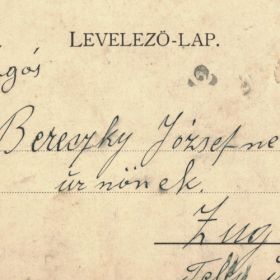 LEVELEZŐ-LAP.
Bereczky József ne
úrnőnek.
Zug